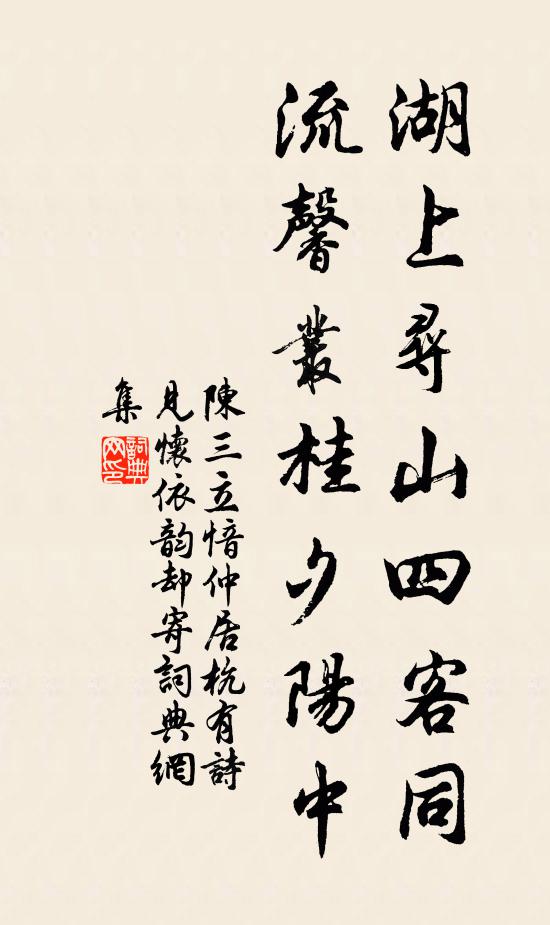 湖上尋山四客同
流馨叢桂夕陽中
陳三立愔仲居杭有詩
見懷依韵却寄詞典網
集
詞典
网印